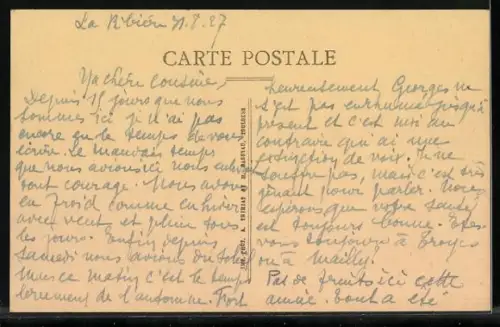 La Ribière 31.8.27
CARTE POSTALE
Ma chère Cousine,
Depuis 15 jours que nous
sommes ici je n'ai pas
encore eu le temps de vous
écrire. Le mauvais temps
que nous avions ici nous enlevait
tout courage. Nous avons
eu froid comme en hiver
avec vent et pluie tous
les jours. Enfin depuis
samedi nous avions du soleil
mais ce matin c'est le temps
de l'automne. Fort
heureusement Georges ne
s'est pas enrhumé jusqu'à
présent et c'est moi au
contraire qui ai une
extinction de voix. Je ne
souffre pas, mais c'est très
gênant pour parler. Nous
espérons que votre santé
est toujours bonne. Êtes
vous toujours à Troyes
ou à Mailly.
Pas de fruits ici cette
année. Tout a été
PHOT. A. THIRIAT ET TOULOUSE